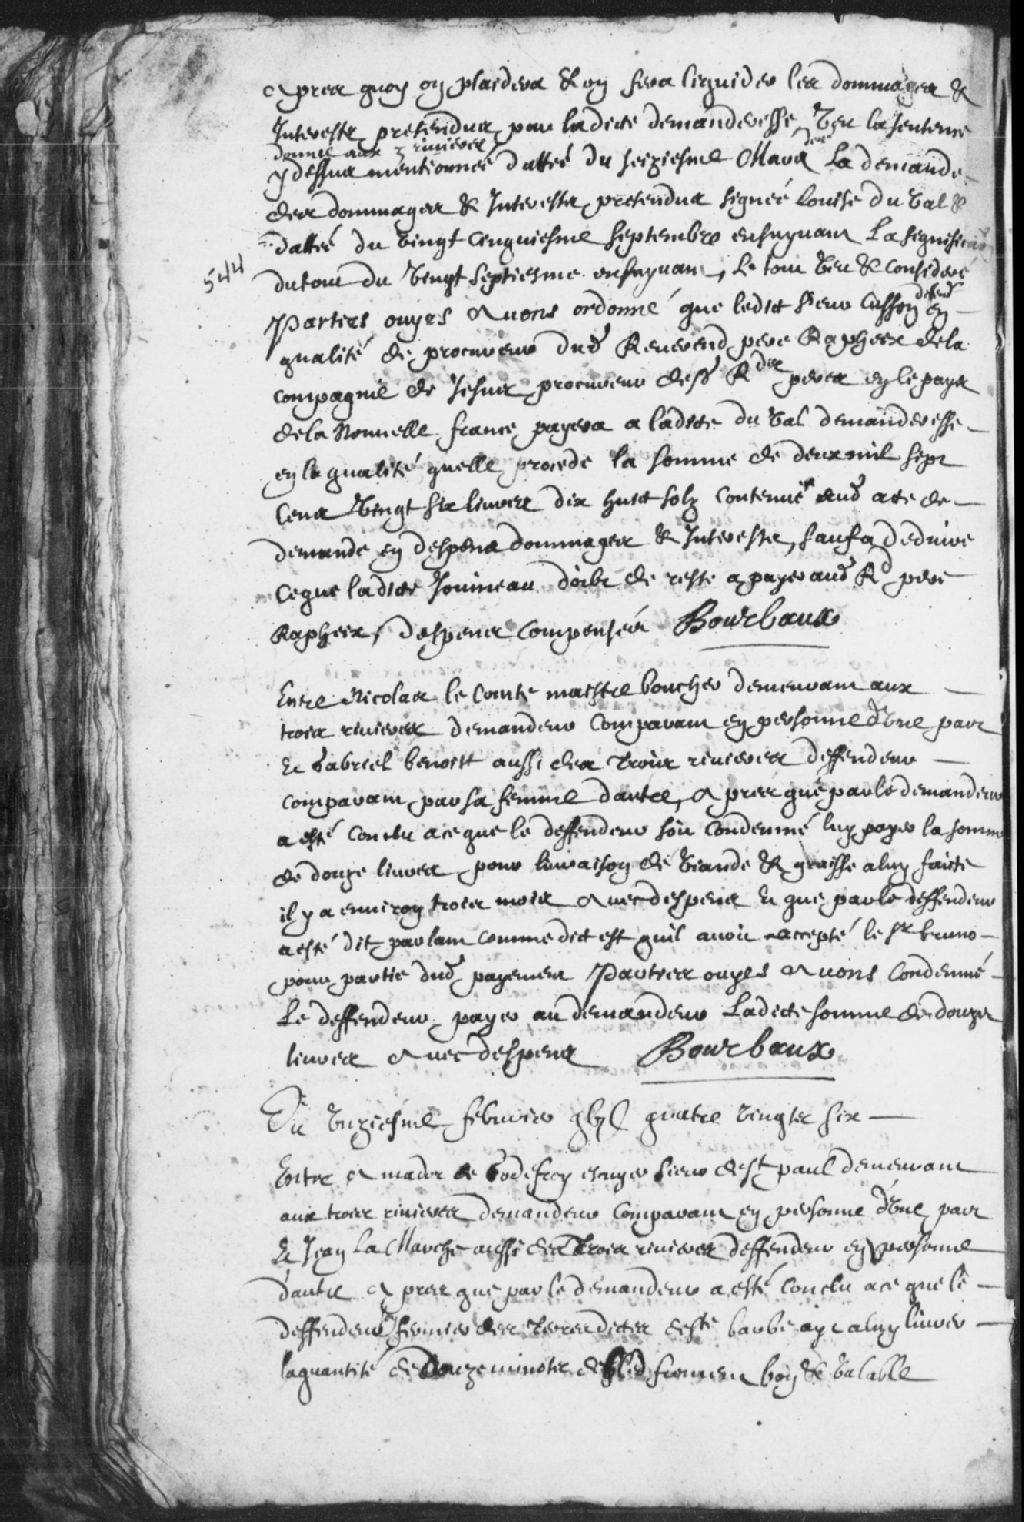 apres quoy on plaidera & on fera liquider les dommages &
Interests pretendus par ladicte demanderesse, Veu la sentence
donnée aux 3 rivieres
ydessus mentionnée dattée du seiziesme Mars der La demande
des dommages & Interests pretendus signée Louise du Val &
dattée du vingt cinquiesme septembre ensuyvant La signification
544
du tout du vingt septiesme ensuyvant, Le tout veu & consideré
Parties ouyes Avons ordonné que ledict sieur Cusson deffendr en
qualité de procureur dud Reverend pere Rapheix de la
compagnie de Jesus procureur desd Rds peres en le pays
de la Nouvelle france payera a ladicte du Val demanderesse
en la qualité quelle procede la somme de deux mil sept
Cens vingt six livres dix huict solz contenue aud acte de
demande en despens dommages & Interests, sauf a deduire
Ce que ladicte Jouineau doibt de reste a payer aud Rd pere
Rapheix, despens compensés Bourbaux
Entre Nicolas le Comte maistre boucher demeurant aux
trois rivieres demandeur comparant en personne d'une part
Et Gabriel benoist aussi des trois rivieres deffendeur
comparant par sa femme d'autre, Apres que par le demandeur
a esté conclu a ce que le deffendeur soit condemné luy payer la somme
de douze livres pour livraison de viande & graisse a luy faicte
il y a environ trois mois avec despens Et que par le deffendeur
a esté dit parlant comme dict est quil avoit accepté le sr bruno
pour partie dud payement Parties ouyes Avons Condemné
Le deffendeur payer au demandeur Ladicte somme de douze
livres avec despens Bourbaux
Du unziesme febvrier gbjC quatre vingts six
Entre Amador de Godefroy escuyer sieur de St paul demeurant
aux trois rivieres demandeur comparant en personne d'une part
Et Jean La Marche aussi des trois rivieres deffendeur en personne
d'autre Apres que par le demandeur a esté conclu a ce que le
deffendeur fermier des terres dictes de ste barbe ayt a luy livrer
la quantité de Douze minots de bled froment bon & valable